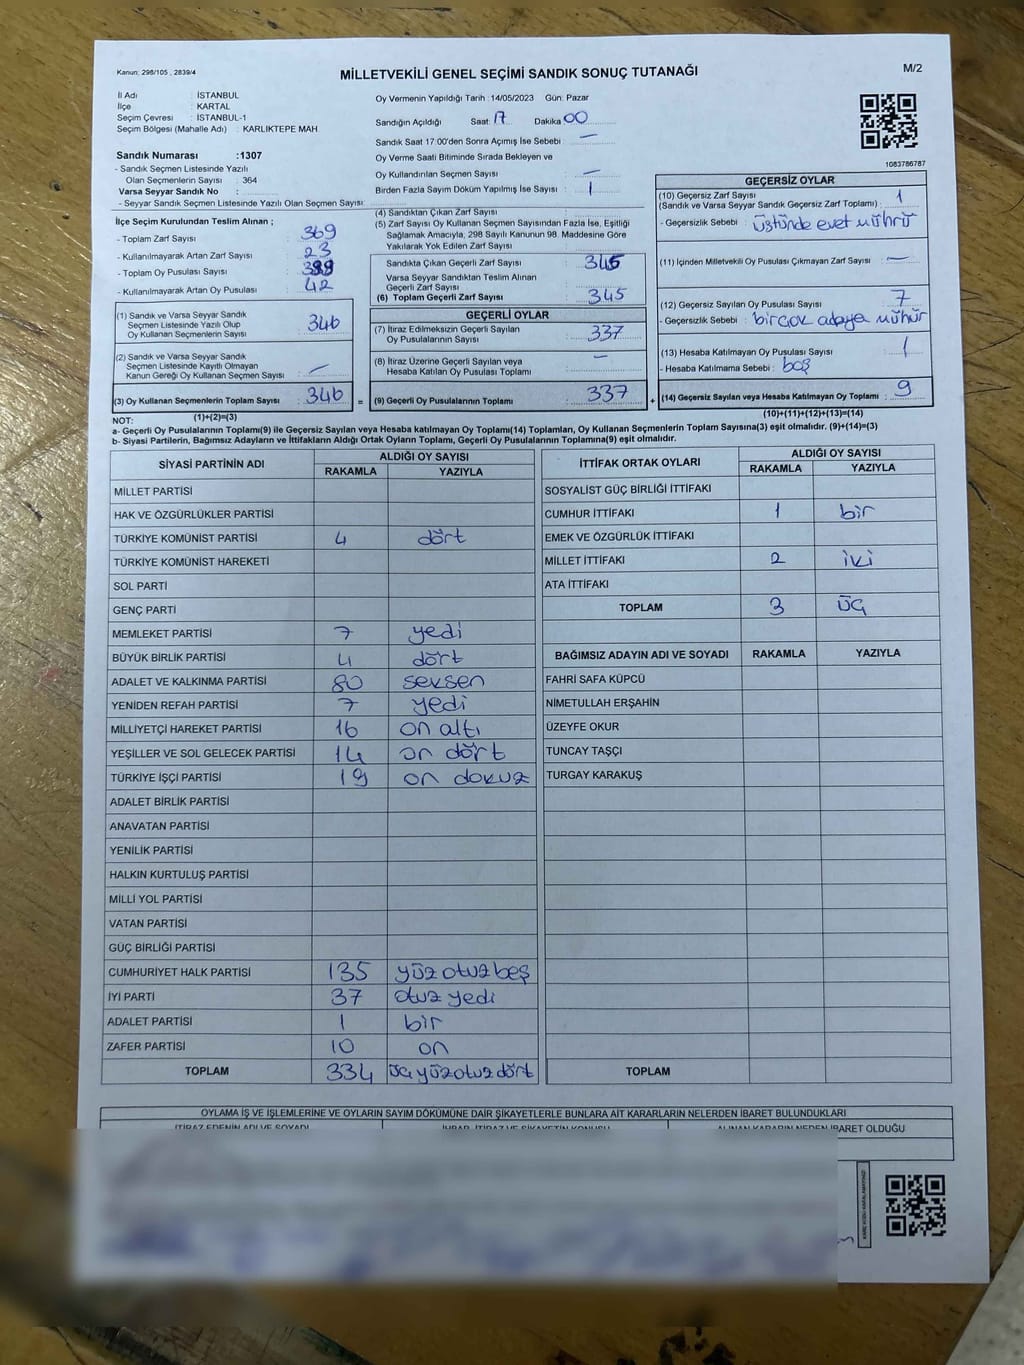 Kanun: 298/105 , 2839/4
MİLLETVEKİLİ GENEL SEÇİMİ SANDIK SONUÇ TUTANAĞI
M/2
İl Adı : İSTANBUL
İlçe : KARTAL
Seçim Çevresi : İSTANBUL-1
Seçim Bölgesi (Mahalle Adı) : KARLIKTEPE MAH.
Sandık Numarası :1307
- Sandık Seçmen Listesinde Yazılı
Olan Seçmenlerin Sayısı : 364
Varsa Seyyar Sandık No :
- Seyyar Sandık Seçmen Listesinde Yazılı Olan Seçmen Sayısı:
Oy Vermenin Yapıldığı Tarih :14/05/2023 Gün: Pazar
Sandığın Açıldığı Saat: 17 Dakika 00
Sandık Saat 17:00'den Sonra Açılmış İse Sebebi : —
Oy Verme Saati Bitiminde Sırada Bekleyen ve
Oy Kullandırılan Seçmen Sayısı : —
Birden Fazla Sayım Döküm Yapılmış İse Sayısı : 1
1083786787
İlçe Seçim Kurulundan Teslim Alınan ;
- Toplam Zarf Sayısı : 369
- Kullanılmayarak Artan Zarf Sayısı : 23
- Toplam Oy Pusulası Sayısı :
- Kullanılmayarak Artan Oy Pusulası : 42
(1) Sandık ve Varsa Seyyar Sandık
Seçmen Listesinde Yazılı Olup
Oy Kullanan Seçmenlerin Sayısı : 346
(2) Sandık ve Varsa Seyyar Sandık
Seçmen Listesinde Kayıtlı Olmayan
Kanun Gereği Oy Kullanan Seçmen Sayısı : —
(3) Oy Kullanan Seçmenlerin Toplam Sayısı : 346
(1)+(2)=(3)
(4) Sandıktan Çıkan Zarf Sayısı :
(5) Zarf Sayısı Oy Kullanan Seçmen Sayısından Fazla İse, Eşitliği
Sağlamak Amacıyla, 298 Sayılı Kanunun 98. Maddesine Göre
Yakılarak Yok Edilen Zarf Sayısı :
Sandıkta Çıkan Geçerli Zarf Sayısı : 345
Varsa Seyyar Sandıktan Teslim Alınan
Geçerli Zarf Sayısı :
(6) Toplam Geçerli Zarf Sayısı : 345
GEÇERLİ OYLAR
(7) İtiraz Edilmeksizin Geçerli Sayılan
Oy Pusulalarının Sayısı : 337
(8) İtiraz Üzerine Geçerli Sayılan veya
Hesaba Katılan Oy Pusulası Toplamı : —
= (9) Geçerli Oy Pusulalarının Toplamı : 337
GEÇERSİZ OYLAR
(10) Geçersiz Zarf Sayısı
(Sandık ve Varsa Seyyar Sandık Geçersiz Zarf Toplamı) : 1
- Geçersizlik Sebebi : üstünde evet mührü
(11) İçinden Milletvekili Oy Pusulası Çıkmayan Zarf Sayısı : —
(12) Geçersiz Sayılan Oy Pusulası Sayısı : 7
- Geçersizlik Sebebi : birçok adaya mühür
(13) Hesaba Katılmayan Oy Pusulası Sayısı : 1
- Hesaba Katılmama Sebebi : boş
+ (14) Geçersiz Sayılan veya Hesaba Katılmayan Oy Toplamı : 9
(10)+(11)+(12)+(13)=(14)
NOT:
a- Geçerli Oy Pusulalarının Toplamı(9) ile Geçersiz Sayılan veya Hesaba katılmayan Oy Toplamı(14) Toplamları, Oy Kullanan Seçmenlerin Toplam Sayısına(3) eşit olmalıdır. (9)+(14)=(3)
b- Siyasi Partilerin, Bağımsız Adayların ve İttifakların Aldığı Ortak Oyların Toplamı, Geçerli Oy Pusulalarının Toplamına(9) eşit olmalıdır.
SİYASİ PARTİNİN ADI ALDIĞI OY SAYISI
RAKAMLA YAZIYLA
MİLLET PARTİSİ
HAK VE ÖZGÜRLÜKLER PARTİSİ
TÜRKİYE KOMÜNİST PARTİSİ 4 dört
TÜRKİYE KOMÜNİST HAREKETİ
SOL PARTİ
GENÇ PARTİ
MEMLEKET PARTİSİ 7 yedi
BÜYÜK BİRLİK PARTİSİ 4 dört
ADALET VE KALKINMA PARTİSİ 80 seksen
YENİDEN REFAH PARTİSİ 7 yedi
MİLLİYETÇİ HAREKET PARTİSİ 16 on altı
YEŞİLLER VE SOL GELECEK PARTİSİ 14 on dört
TÜRKİYE İŞÇİ PARTİSİ 19 on dokuz
ADALET BİRLİK PARTİSİ
ANAVATAN PARTİSİ
YENİLİK PARTİSİ
HALKIN KURTULUŞ PARTİSİ
MİLLİ YOL PARTİSİ
VATAN PARTİSİ
GÜÇ BİRLİĞİ PARTİSİ
CUMHURİYET HALK PARTİSİ 135 yüz otuz beş
İYİ PARTİ 37 otuz yedi
ADALET PARTİSİ 1 bir
ZAFER PARTİSİ 10 on
TOPLAM 334 üç yüz otuz dört
İTTİFAK ORTAK OYLARI ALDIĞI OY SAYISI
RAKAMLA YAZIYLA
SOSYALİST GÜÇ BİRLİĞİ İTTİFAKI
CUMHUR İTTİFAKI 1 bir
EMEK VE ÖZGÜRLÜK İTTİFAKI
MİLLET İTTİFAKI 2 iki
ATA İTTİFAKI
TOPLAM 3 üç
BAĞIMSIZ ADAYIN ADI VE SOYADI RAKAMLA YAZIYLA
FAHRİ SAFA KÜPCÜ
NİMETULLAH ERŞAHİN
ÜZEYFE OKUR
TUNCAY TAŞÇI
TURGAY KARAKUŞ
TOPLAM
OYLAMA İŞ VE İŞLEMLERİNE VE OYLARIN SAYIM DÖKÜMÜNE DAİR ŞİKAYETLERLE BUNLARA AİT KARARLARIN NELERDEN İBARET BULUNDUKLARI
İTİRAZ EDENİN ADI VE SOYADI İHBAR, İTİRAZ VE ŞİKAYETİN KONUSU ALINAN KARARIN NEDEN İBARET OLDUĞU
KARE KODU KARALAMAYINIZ!